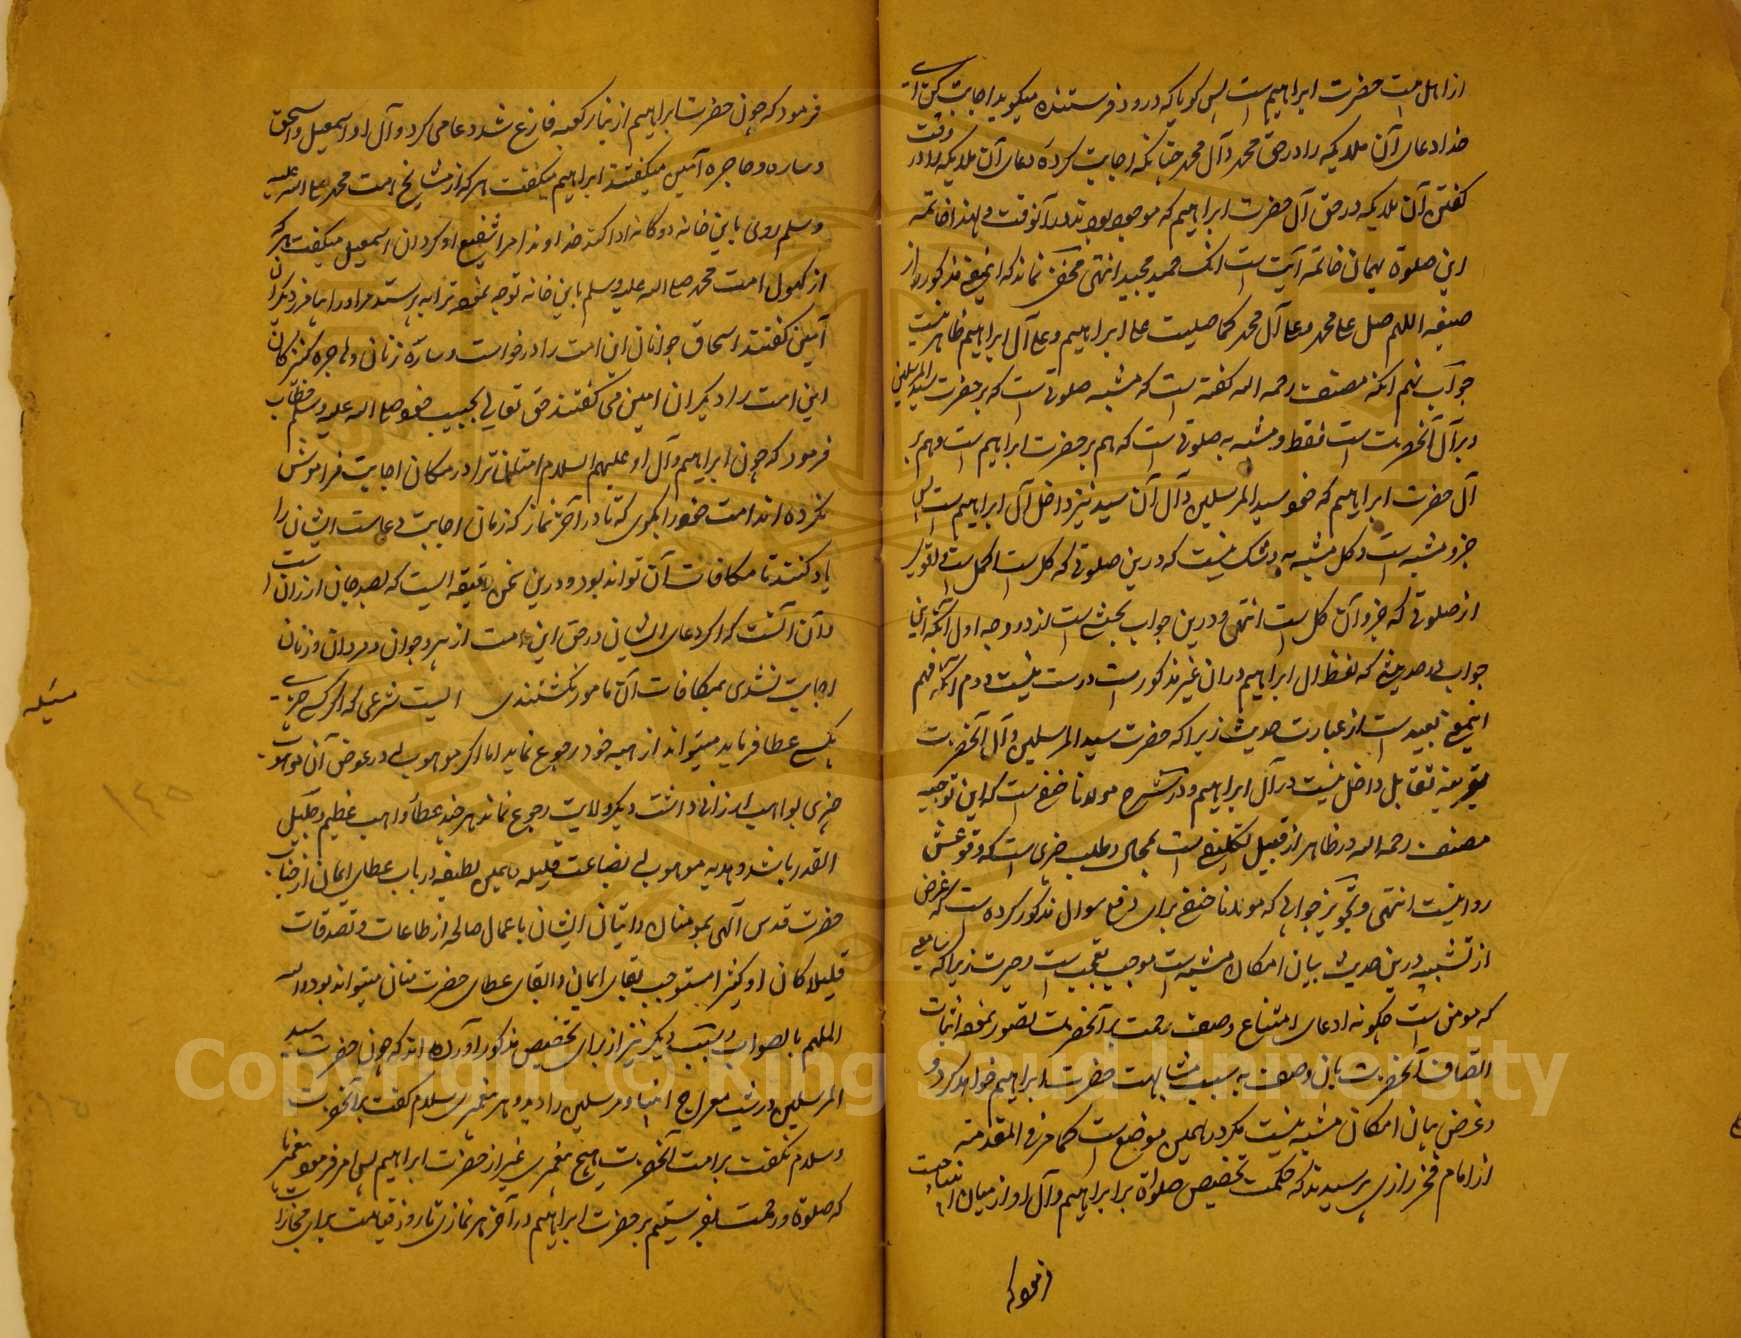 از اهل بیت حضرت ابراهیم است پس گویا که درود فرستنده میگوید اجابت کن ای
خدا دعای آن ملایکه را در حق محمد و آل محمد چنانکه اجابت کردهٔ دعای آن ملایکه را در وقت
گفتن آن ملایکه در حق آل حضرت ابراهیم که موجود بودند در آنوقت و لهذا خاتمه
این صلوة همان خاتمه آیت است انک حمید مجید انتهی مخفی نماند که اینمعنی مذکور از
صیغه اللهم صل علی محمد و علی آل محمد کما صلیت علی ابراهیم و علی آل ابراهیم ظاهر نیست
جواب نهم آنکه مصنف رحمه الله گفته است که مشبه صلوتی است که بر حضرت سید المرسلین
و بر آل آنحضرت است فقط و مشبه به صلوتی است که هم بر حضرت ابراهیم است و هم بر
آل حضرت ابراهیم که خود سید المرسلین و آل آن سید نیز داخل آل ابراهیم است پس
جزو مشبه است و کل مشبه به و شک نیست که درین صلوتی که کل است اکمل است و اقوی
از صلوتی که جزو آن کل است انتهی و درین جواب بحثی است از دو وجه اول آنکه این
جواب در حدیثی که لفظ ال ابراهیم دران غیر مذکور است درست نیست دوم آنکه فهم
اینمعنی بعید است از عبارت حدیث زیرا که حضرت سید المرسلین و آل آنحضرت
بقرینه تقابل داخل نیست در آل ابراهیم و در شرح مولانا حنفی است که این توجیه
مصنف رحمه الله در ظاهر از قبیل تکلیف است بمحال و طلب چیزی است که وقوعش
روا نیست انتهی و تجویز جوابی که مولانا حنفی برای دفع سوال مذکور کرده است که غرض
از تشبیه درین حدیث بیان امکان مشبه است موجب تعجب است و حیرت زیرا که سامعی
که مومن است چگونه ادعای امتناع وصف رحمت بر آنحضرت تصور نموده اثبات
اتصاف آنحضرت باین وصف به سبب مشابهت حضرت ابراهیم خواهد کرد و
و غرض بیان امکان مشبه نیست مگر در همین موضع است کما مر فی المقدمة
از امام فخر رازی پرسیدند که حکمت تخصیص صلوة بر ابراهیم و آل او از میان انبیا چیست
فرمود که
فرمود که چون حضرت ابراهیم از بنای کعبه فارغ شد دعا می کرد و آل او اسمعیل و اسحق
و ساره و هاجره آمین میگفتند ابراهیم میگفت هر که از مشایخ امت محمد صلی الله علیه
وسلم روی باین خانه دوگانه ادا کند خداوندا مرا شفیع او گردان اسمعیل میگفت هر که
از کهول امت محمد صلی الله علیه وسلم باین خانه توجه نموده ترا به پرستد
آمین گفتند اسحاق جوانان این امت را درخواست و ساره زنان و هاجره کنیزکان
این امت را دیگران امین می گفتند حق تعالی بحبیب خود صلی الله علیه وسلم خطاب
فرمود که چون ابراهیم و آل او علیهم السلام امتان ترا در مکان اجابت فراموش
نکرده اند امت خود را بگوی که تا در آخر نماز که زمان اجابت دعاست ایشان را
یاد کنند تا مکافات آن تواند بود و درین سخن دقیقه ایست که بصد جان ارزان است
و آن آنست که اگر دعای ایشان در حق این امت از پیر و جوان و مردان و زنان
اجابت نشدی بمکافات آن مامور نگشتندی مسئله ایست شرعی که اگر کسی چیزی
بکسی عطا فرماید میتواند از هبه خود رجوع نماید اما اگر موهوب له در عوض آن موهوب
چیزی بواهب ارزانی داشت دیگر ولایت رجوع نماند هر چند عطاء واهب عظیم و جلیل
القدر باشد و هدیه موهوب له بضاعت قلیله همین لطیفه در باب عطای ایمان از جناب
حضرت قدس آلهی بمومنان و اتیان ایشان باعمال صالحه از طاعات و تصدقات
قلیلا کان او کثیرا مستوجب بقای ایمان و ابقای عطای حضرت منان میتواند بود والله
الملهم بالصواب و سبب دیگر نیز از برای تخصیص مذکور آورده اند که چون حضرت سید
المرسلین در شب معراج انبیا و مرسلین را دید و هر پیغمبری سلام گفت بر آنحضرت
و سلام نگفت بر امت آنحضرت هیچ پیغمبری غیر از حضرت ابراهیم پس امر فرمود پیغمبر
که صلوة و رحمت بفرستیم بر حضرت ابراهیم در آخر هر نمازی تا روز قیامت برای مجازات
مسئله